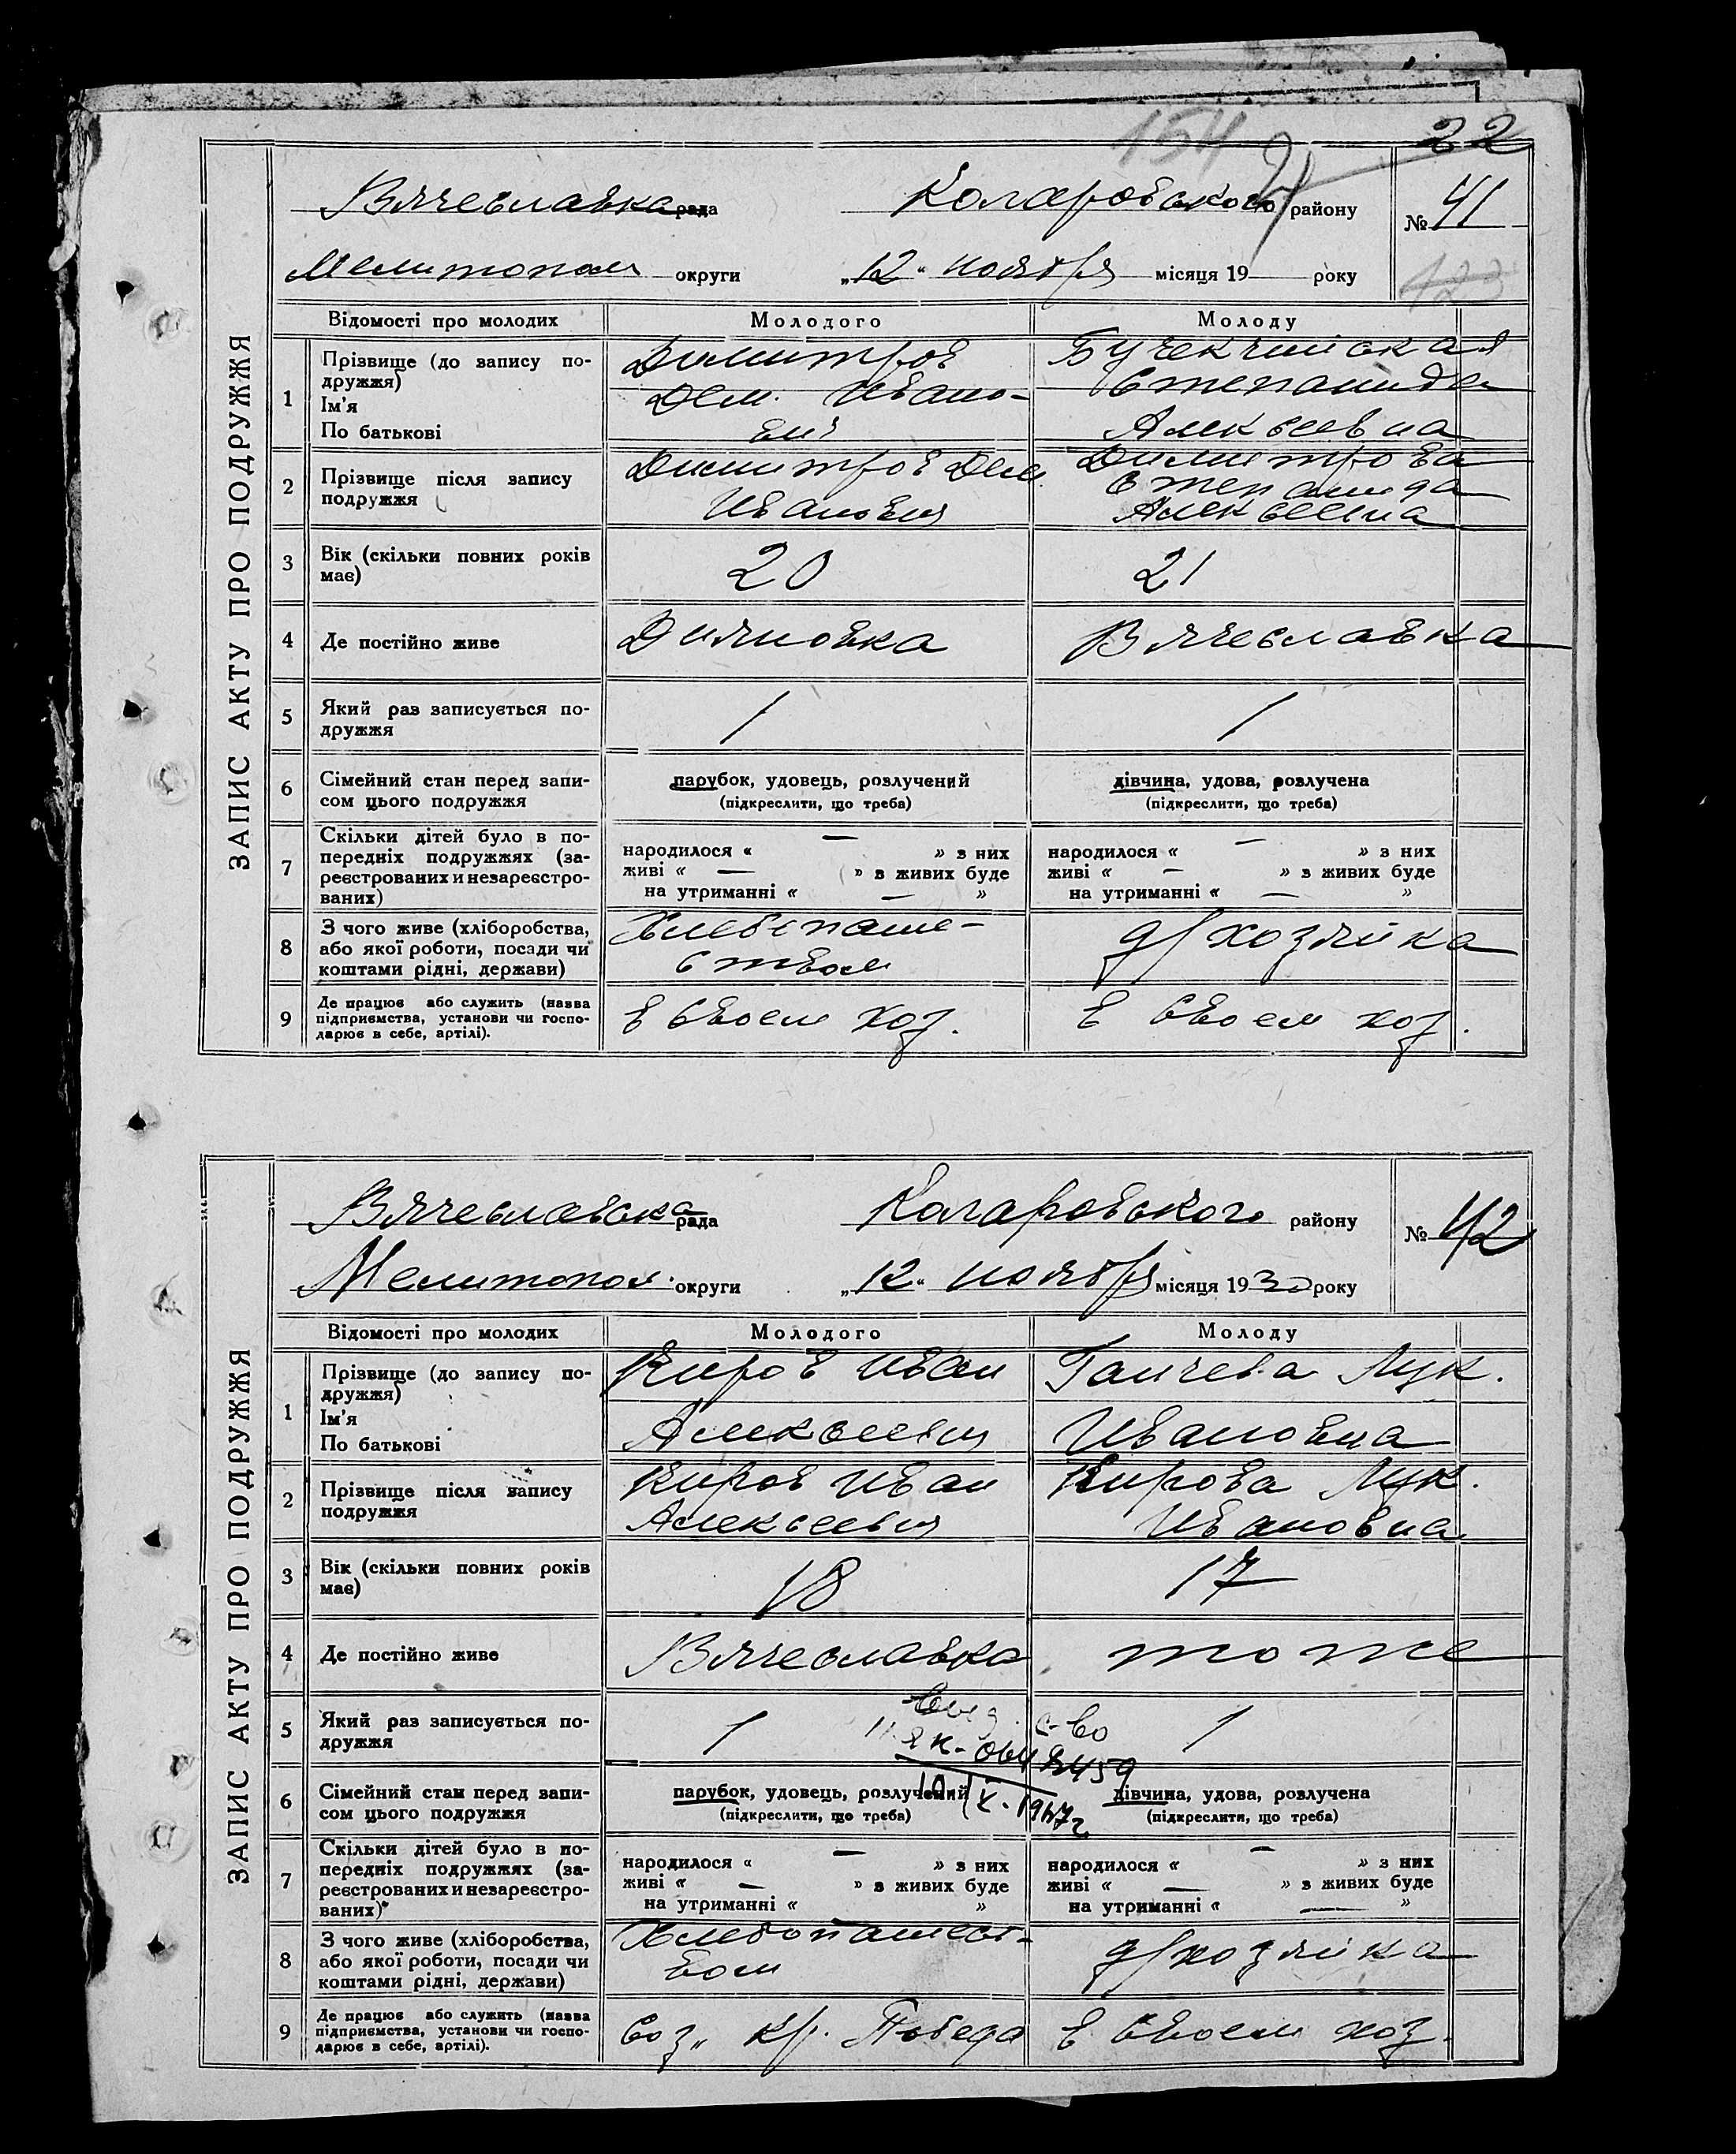 154
22
ЗАПИС АКТУ ПРО ПОДРУЖЖЯ
Вячеславка рада Коларовского району № 41
Мелитополя округи „12“ ноября місяця 19 року
123
Відомості про молодих Молодого Молоду
1 Прізвище (до запису подружжя)
Ім'я
По батькові
Димитров
Дем. Ивано-
вич
Бучекчийская
Степанида
Алексеевна
2 Прізвище після запису
подружжя
Димитров Дем.
Иванович
Димитрова
Степанида
Алексеевна
3 Вік (скільки повних років
має)
20
21
4 Де постійно живе Дияновка Вячеславка
5 Який раз записується по-
дружжя
1
1
6 Сімейний стан перед запи-
сом цього подружжя
парубок, удовець, розлучений
(підкреслити, що треба)
дівчина, удова, розлучена
(підкреслити, що треба)
7 Скільки дітей було в по-
передніх подружжях (за-
реєстрованих и незареєстро-
ваних)
народилося « — » з них
живі « — » в живих буде
на утриманні « — »
народилося « — » з них
живі « — » в живих буде
на утриманні « — »
8 З чого живе (хліборобства,
або якої роботи, посади чи
коштами рідні, держави)
Хлебопаше-
ством
д/хозяйка
9 Де працює або служить (назва
підприємства, установи чи госпо-
дарює в себе, артілі).
в своем хоз.
в своем хоз.
ЗАПИС АКТУ ПРО ПОДРУЖЖЯ
Вячеславска рада Коларовського району № 42
Мелитопол. округи „12“ ноября місяця 1930 року
Відомості про молодих Молодого Молоду
1 Прізвище (до запису по-
дружжя)
Ім'я
По батькові
Киров Иван
Алексеевич
Ганчева Лук.
Ивановна
2 Прізвище після запису
подружжя
Киров Иван
Алексеевич
Кирова Лук.
Ивановна
3 Вік (скільки повних років
має)
18
17
4 Де постійно живе Вячеславка тоже
5 Який раз записується по-
дружжя
1
1
с-во
6 Сімейний стан перед запи-
сом цього подружжя
парубок, удовець, розлучений
(підкреслити, що треба)
дівчина, удова, розлучена
(підкреслити, що треба)
7 Скільки дітей було в по-
передніх подружжях (за-
реєстрованих и незареєстро-
ваних)
народилося « — » з них
живі « — » в живих буде
на утриманні « »
народилося « — » з них
живі « — » в живих буде
на утриманні « — »
8 З чого живе (хліборобства,
або якої роботи, посади чи
коштами рідні, держави)
Хлебопашест-
вом
д/хозяйка
9 Де працює або служить (назва
підприємства, установи чи госпо-
дарює в себе, артілі).
Соз „ Кр. Победа
в своем хоз.